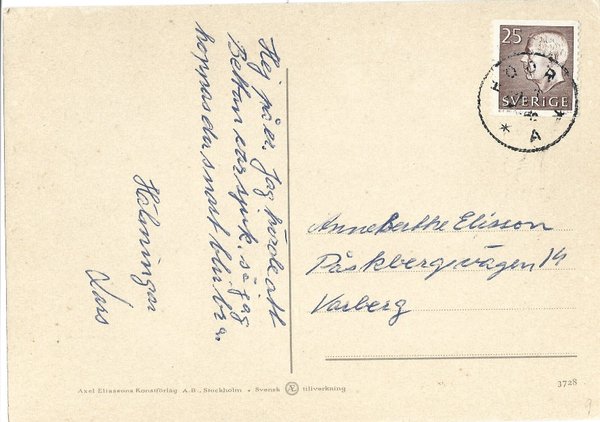 Hej på er. Jag hörde att
Bettan var sjuk, så jag
hoppas du snart blir bra.
Hälningar
Lars
25
SVERIGE
AnneBerthe Elisson
Påskbergsvägen 14
Varberg
Axel Eliassons Konstförlag A.B., Stockholm - Svensk Æ tillverkning
3728